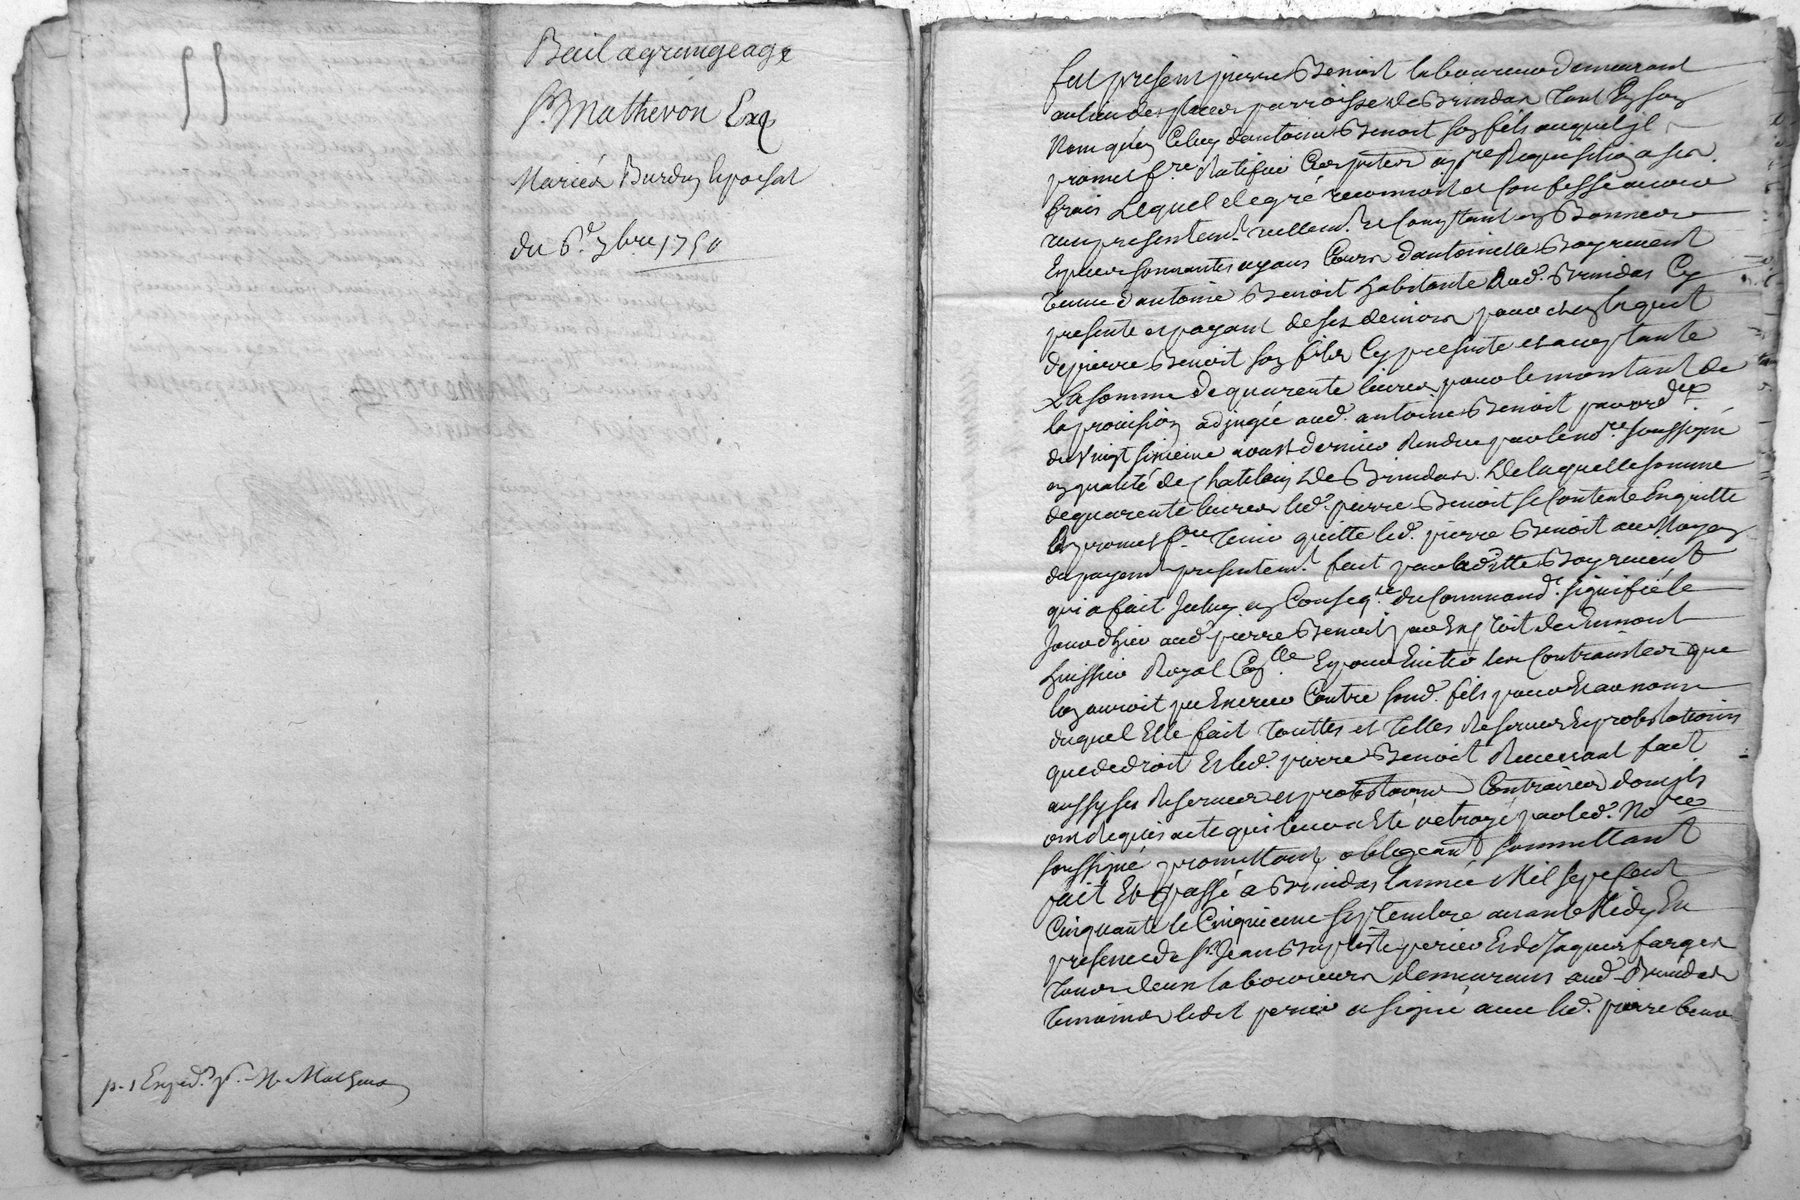 55
Bail a grangeage
Sr. Mathevon Exp
Maries Burdin Epoisat
du 6e. 7bre 1750
p. 1 Exped. Mathevon
fut present pierre Benoist laboureur demeurant
au lieu des places parroisse de Brindas tant en son
Nom qu'en celuy d'antoine Benoist son fils auquel jl
promet fre. Ratifier Ces pntes a pre. Requisition a ses
frais Lequel de gré reconnoit et Confesse avoir
reçu presentemt. reellemt. Et Comptant en Bonnes
Espèces sonnantes ayans Cours d'antoinette Bayement
veuve d'antoine Benoist habitante Aud. Brindas Cy
presente et payant de ses deniers pour et en l'aquit
de pierre Benoist son fils Cy presente et acceptante
La somme de quarente livres pour le montant de
la provision adjugée aud. antoine Benoist par ordce
du vingt sixieme aoust dernier Rendue par le nore. soussigné
en qualité de Chatelain de Brindas. De laquelle somme
de quarente livres led. pierre Benoist se Contente En quitte
Et promet fre. tenir quitte led. pierre Benoist au Moyen
du payemt. presentemt. fait par laditte Bayement
qui a fait Jceluy en Conseqce. du Command. signifié le
Jour d'hier aud. pierre Benoist par Exploit de Dumont
huissier Royal Et pour Eviter les Contraintes que
l'on auroit pu Exercer Contre sond. fils pour et au nom
duquel Elle fait touttes et telles Reserves Et protestations
que de droit Et led. pierre Benoist Recevant fait
aussy ses Reserves et protestations Contraires dont jls
ont requis acte qui leur a Eté octroyé par led. Nore
soussigné promettant obligeant soumettant
fait Et passé a Brindas l'année Mil sept Cent
Cinquante le Cinquieme septembre avant Midy En
presence de Sr. Jean Baptiste perier Et de Jaques farges
tous deux laboureurs demeurans aud. Brindas
temoins ledit perier a signé avec led. pierre benoi